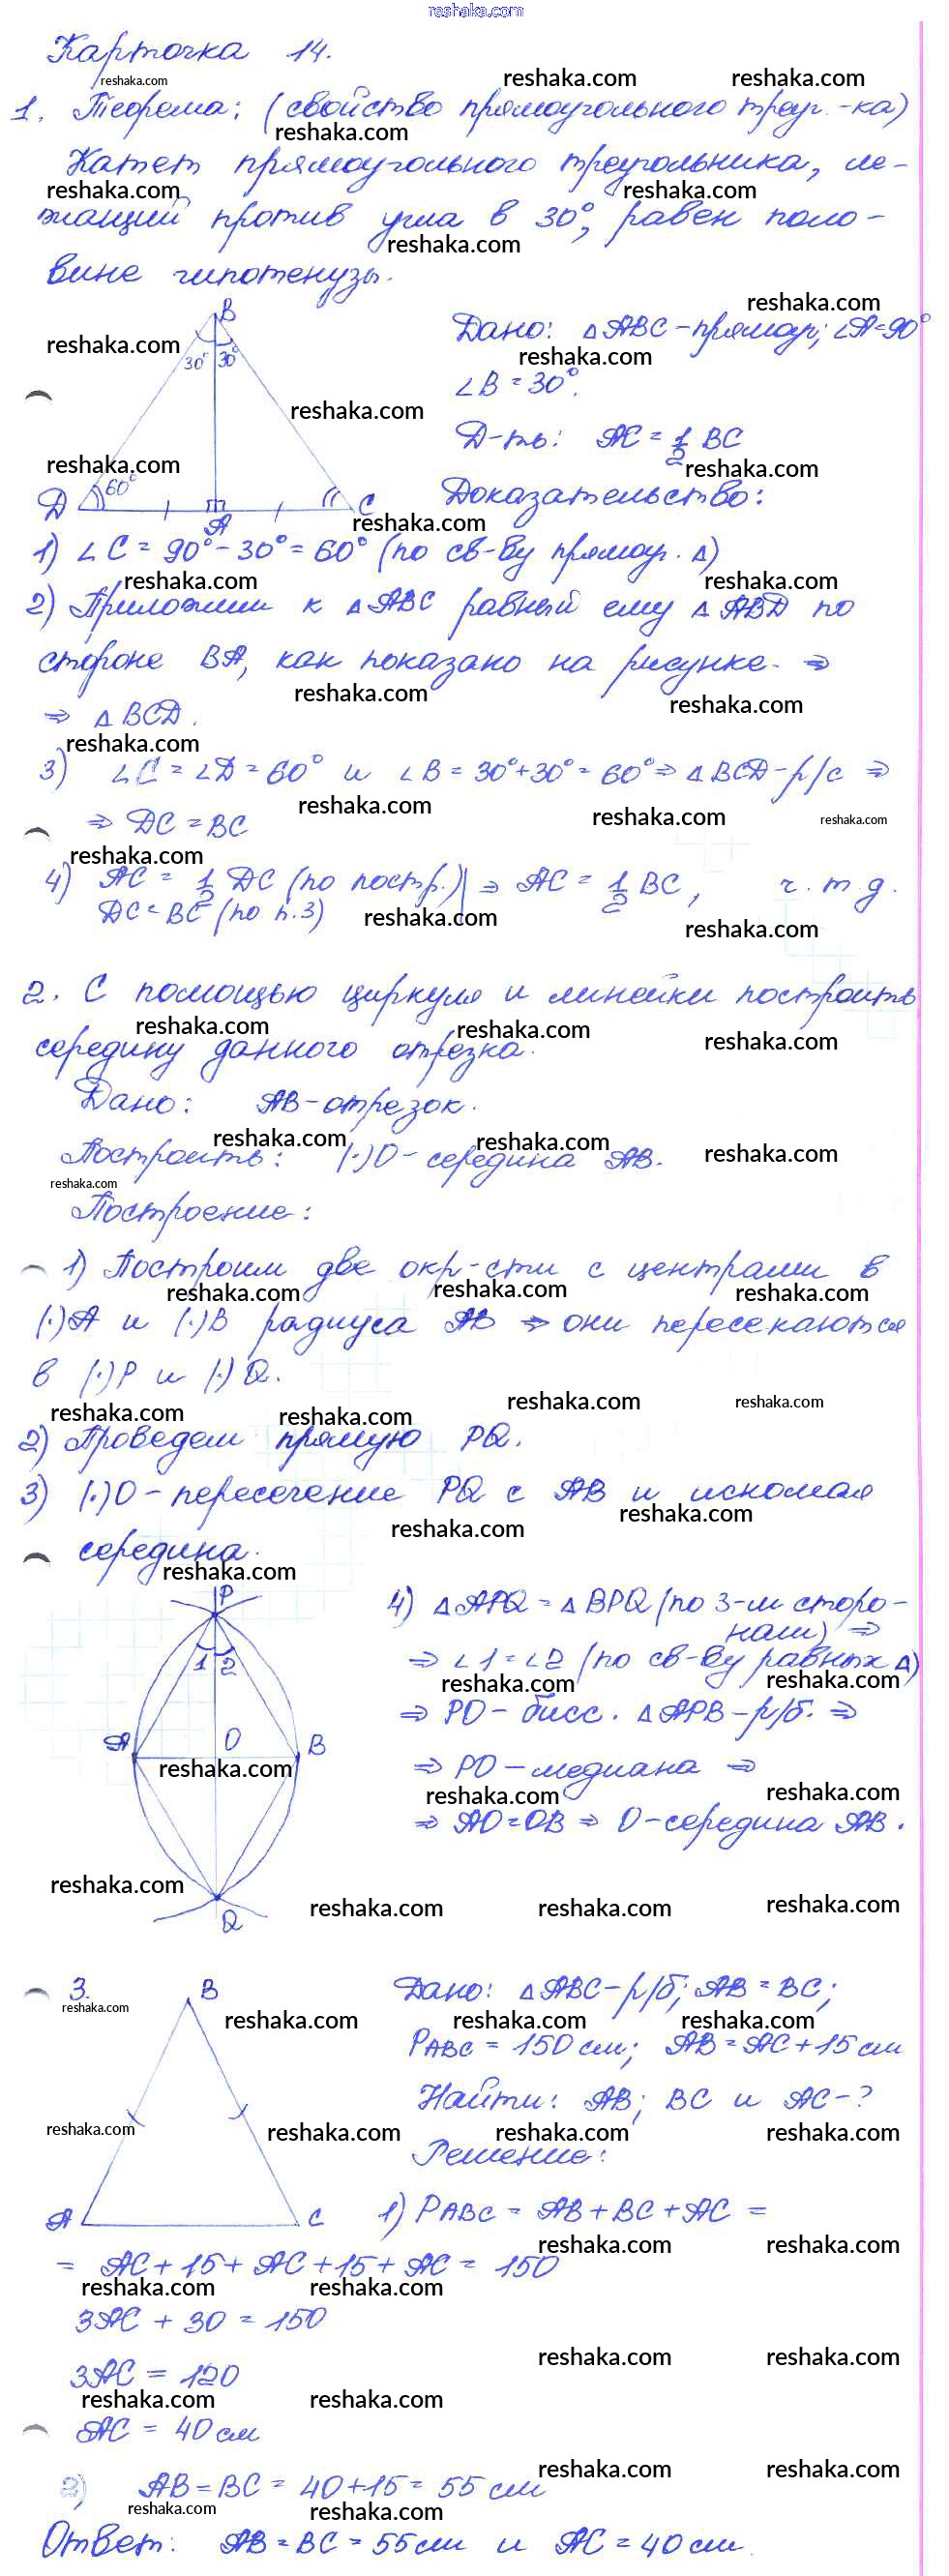 reshaka.com
Карточка 14.
1. Теорема: (свойство прямоугольного треуг.-ка)
Катет прямоугольного треугольника, ле-
жащий против угла в 30°, равен поло-
вине гипотенузы.
B
30° 30°
60°
D A C
Дано: △ABC-прямоуг; ∠A=90°
∠B = 30°.
Д-ть: AC = 1/2 BC
Доказательство:
1) ∠C = 90° - 30° = 60° (по св-ву прямоуг. △)
2) Приложим к △ABC равный ему △ABD по
стороне BA, как показано на рисунке. ⇒
⇒ △BCD.
3) ∠C = ∠D = 60° и ∠B = 30°+30° = 60° ⇒ △BCD-р/с ⇒
⇒ DC = BC
4) AC = 1/2 DC (по постр.) | ⇒ AC = 1/2 BC, ч.т.д.
DC = BC (по п.3)
2. С помощью циркуля и линейки построить
середину данного отрезка.
Дано: AB-отрезок.
Построить: (·)O - середина AB.
Построение:
1) Построим две окр-сти с центрами в
(·)A и (·)B радиуса AB ⇒ они пересекаются
в (·)P и (·)Q.
2) Проведем прямую PQ.
3) (·)O - пересечение PQ с AB и искомая
середина.
P
1 2
A O B
Q
4) △APQ = △BPQ (по 3-м сторо-
нам) ⇒
⇒ ∠1 = ∠2 (по св-ву равных △)
⇒ PO - бисс. △APB - р/б. ⇒
⇒ PO - медиана ⇒
⇒ AO = OB ⇒ O - середина AB.
3.
B
A C
Дано: △ABC - р/б; AB = BC;
PABC = 150 см; AB = AC + 15 см
Найти: AB; BC и AC - ?
Решение:
1) PABC = AB + BC + AC =
= AC + 15 + AC + 15 + AC = 150
3AC + 30 = 150
3AC = 120
AC = 40 см
2) AB = BC = 40 + 15 = 55 см
Ответ: AB = BC = 55 см и AC = 40 см.